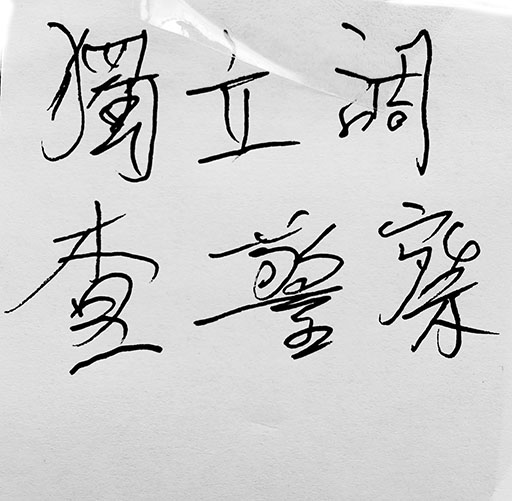 獨立調
查警察